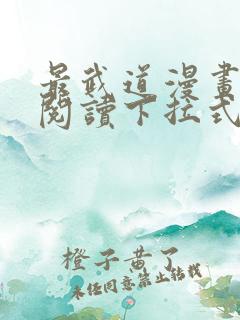 最武道漫畫
閱讀下拉式
橙子黄了
未经同意禁止转载